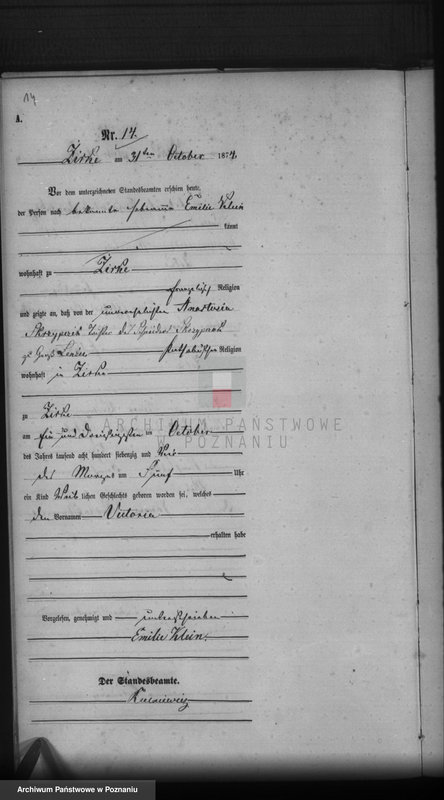 14
A.
Nr. 14.
Zirke am 31ten October 1874.
Vor dem unterzeichneten Standesbeamten erschien heute,
der Person nach bekannt Hebamme Emilie Klein
kannt
wohnhaft zu Zirke
evangelisch Religion
und zeigte an, daß von der unverehelichten Anastasia
Skrzypczak Tochter des Schneiders Skrzypczak
zu Groß katholischer Religion
wohnhaft in Zirke
zu Zirke
am ein und dreißigsten ten October
des Jahres tausend acht hundert siebenzig und vier
des Morgens um Fünf Uhr
ein Kind Weiblichen Geschlechts geboren worden sei, welches
den Vornamen Victoria
erhalten habe
Vorgelesen, genehmigt und unterschrieben
Emilie Klein.
Der Standesbeamte.
ARCHIWUM PAŃSTWOWE
W POZNANIU
Archiwum Państwowe w Poznaniu